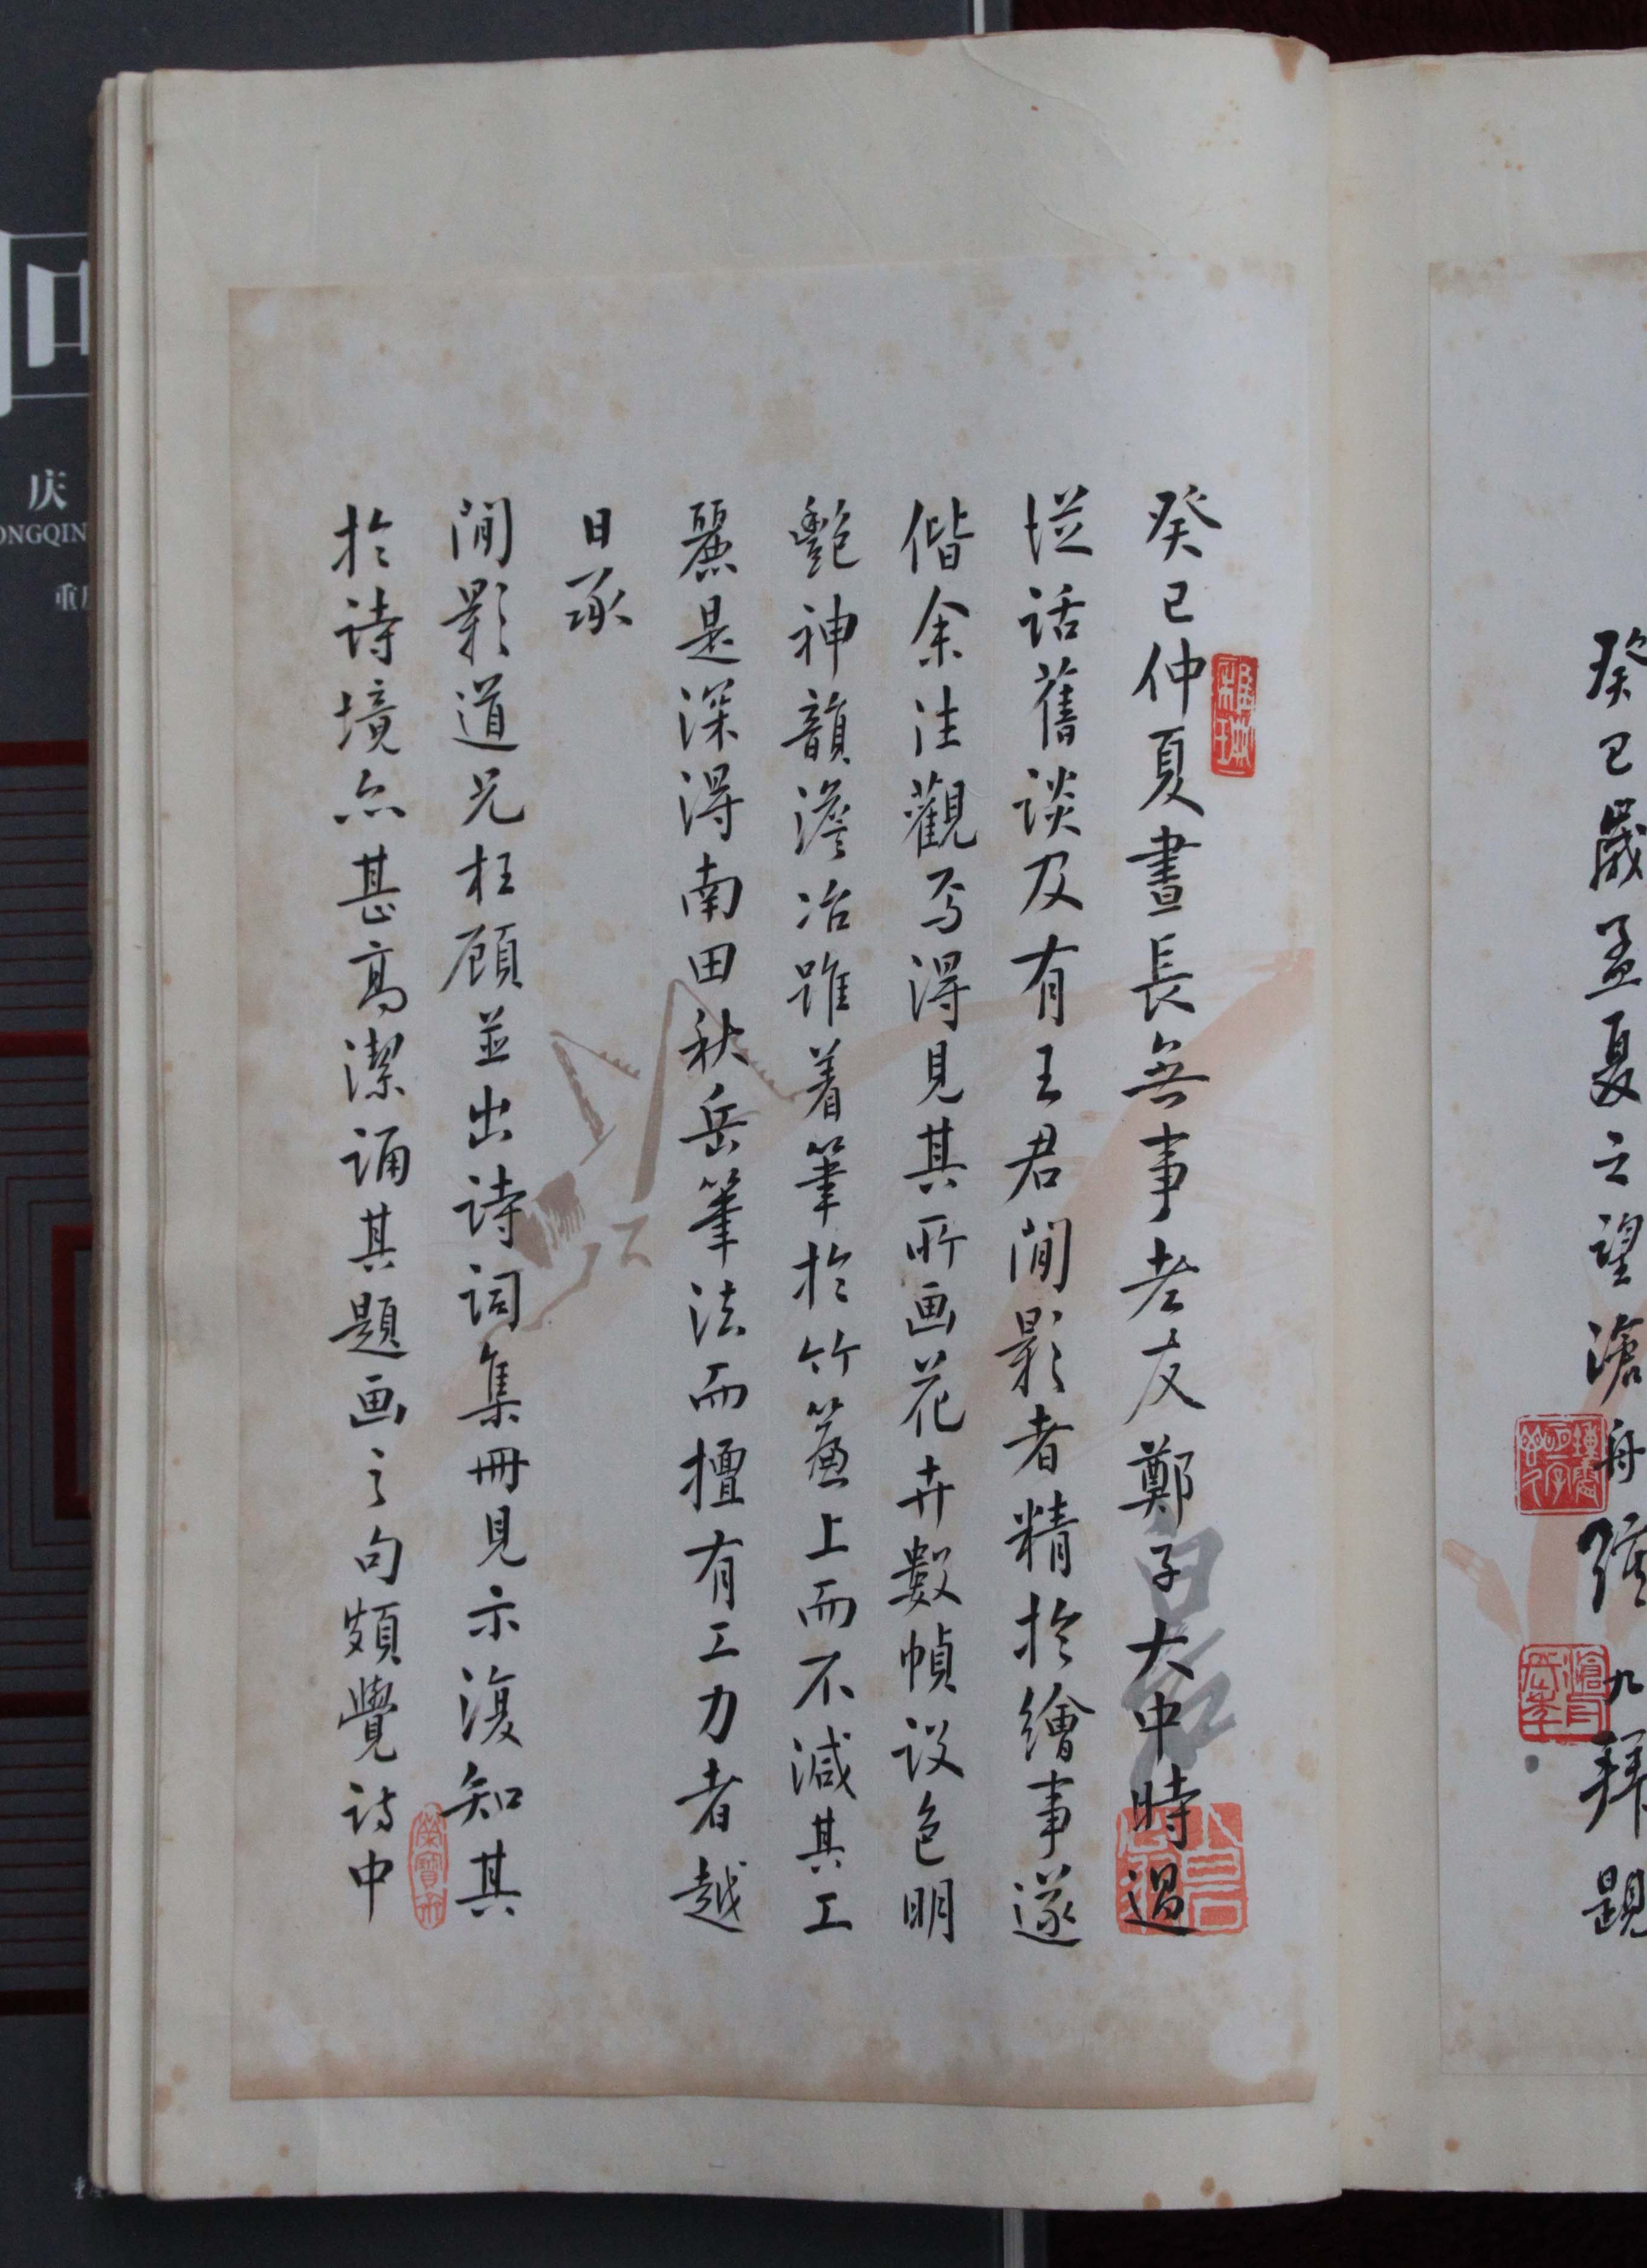 癸巳歲孟夏之望滄舟張九拜題
癸巳仲夏晝長無事老友鄭子大中時過
從話舊談及有王君閒影者精於繪事遂
偕余往觀焉得見其所画花卉數幀设色明
艷神韻澹冶雖着筆於竹簾上而不減其工
麗是深得南田秋岳筆法而擅有工力者越
日承
閒影道兄枉顧並出诗词集冊見示復知其
於诗境亦甚高潔诵其題画之句頗覺诗中
榮寶齋
庆
ONGQIN
重庆